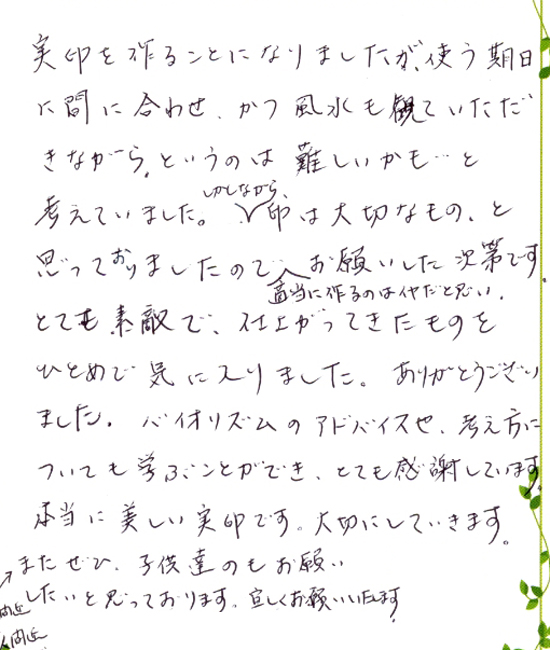 実印を作ることになりましたが、使う期日
に間に合わせ、かつ風水も観ていただ
きながら、というのは難しいかも…と
しかしながら、
考えていました。印は大切なもの、と
思っておりましたのでお願いした次第です。
適当に作るのはイヤだと思い、
とても素敵で、仕上がってきたものを
ひとめで気に入りました。ありがとうござい
ました。バイオリズムのアドバイスや、考え方に
ついても学ぶことができ、とても感謝しています。
本当に美しい実印です。大切にしていきます。
またぜひ、子供達のもお願い
したいと思っております。宜しくお願いいたします。